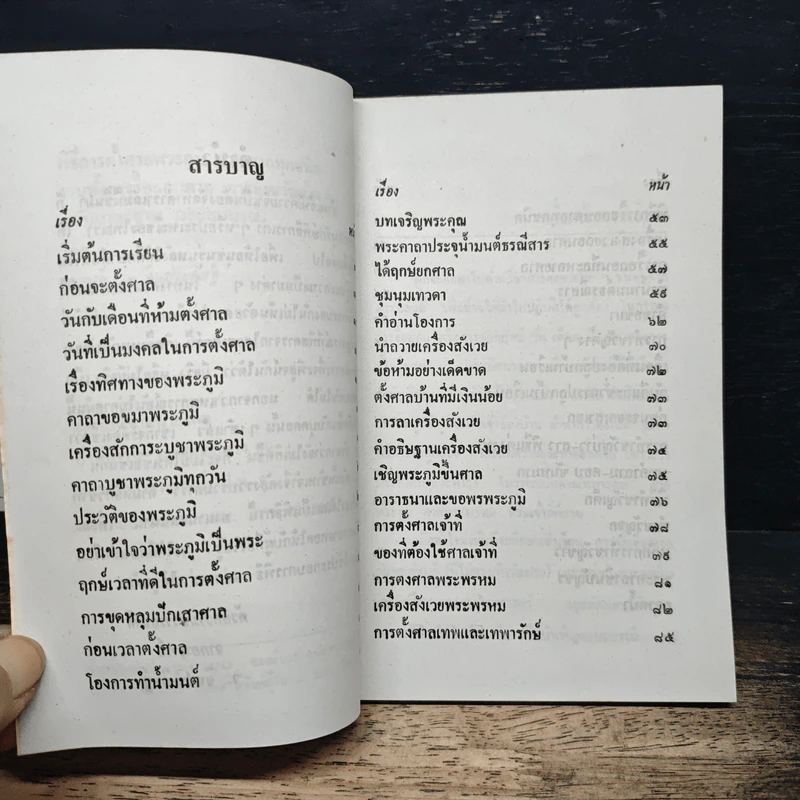 สารบาญ
เรื่อง
เริ่มต้นการเรียน
ก่อนจะตั้งศาล
วันกับเดือนที่ห้ามตั้งศาล
วันที่เป็นมงคลในการตั้งศาล
เรื่องทิศทางของพระภูมิ
คาถาขอขมาพระภูมิ
เครื่องสักการะบูชาพระภูมิ
คาถาบูชาพระภูมิทุกวัน
ประวัติของพระภูมิ
อย่าเข้าใจว่าพระภูมิเป็นพระ
ฤกษ์เวลาที่ดีในการตั้งศาล
การขุดหลุมปักเสาศาล
ก่อนเวลาตั้งศาล
โองการทำน้ำมนต์
เรื่อง หน้า
บทเจริญพระคุณ ๕๓
พระคาถาประจุน้ำมนต์ธรณีสาร ๕๕
ได้ฤกษ์ยกศาล ๕๗
ชุมนุมเทวดา ๕๙
คำอ่านโองการ ๖๒
นำถวายเครื่องสังเวย ๗๐
ข้อห้ามอย่างเด็ดขาด ๗๒
ตั้งศาลบ้านที่มีเงินน้อย ๗๓
การลาเครื่องสังเวย ๗๓
คำอธิษฐานเครื่องสังเวย ๗๔
เชิญพระภูมิขึ้นศาล ๗๕
อาราธนาและขอพรพระภูมิ ๗๖
การตั้งศาลเจ้าที่ ๗๘
ของที่ต้องใช้ศาลเจ้าที่ ๗๙
การตงศาลพระพรหม ๘๑
เครื่องสังเวยพระพรหม ๘๒
การตั้งศาลเทพและเทพารักษ์ ๘๕